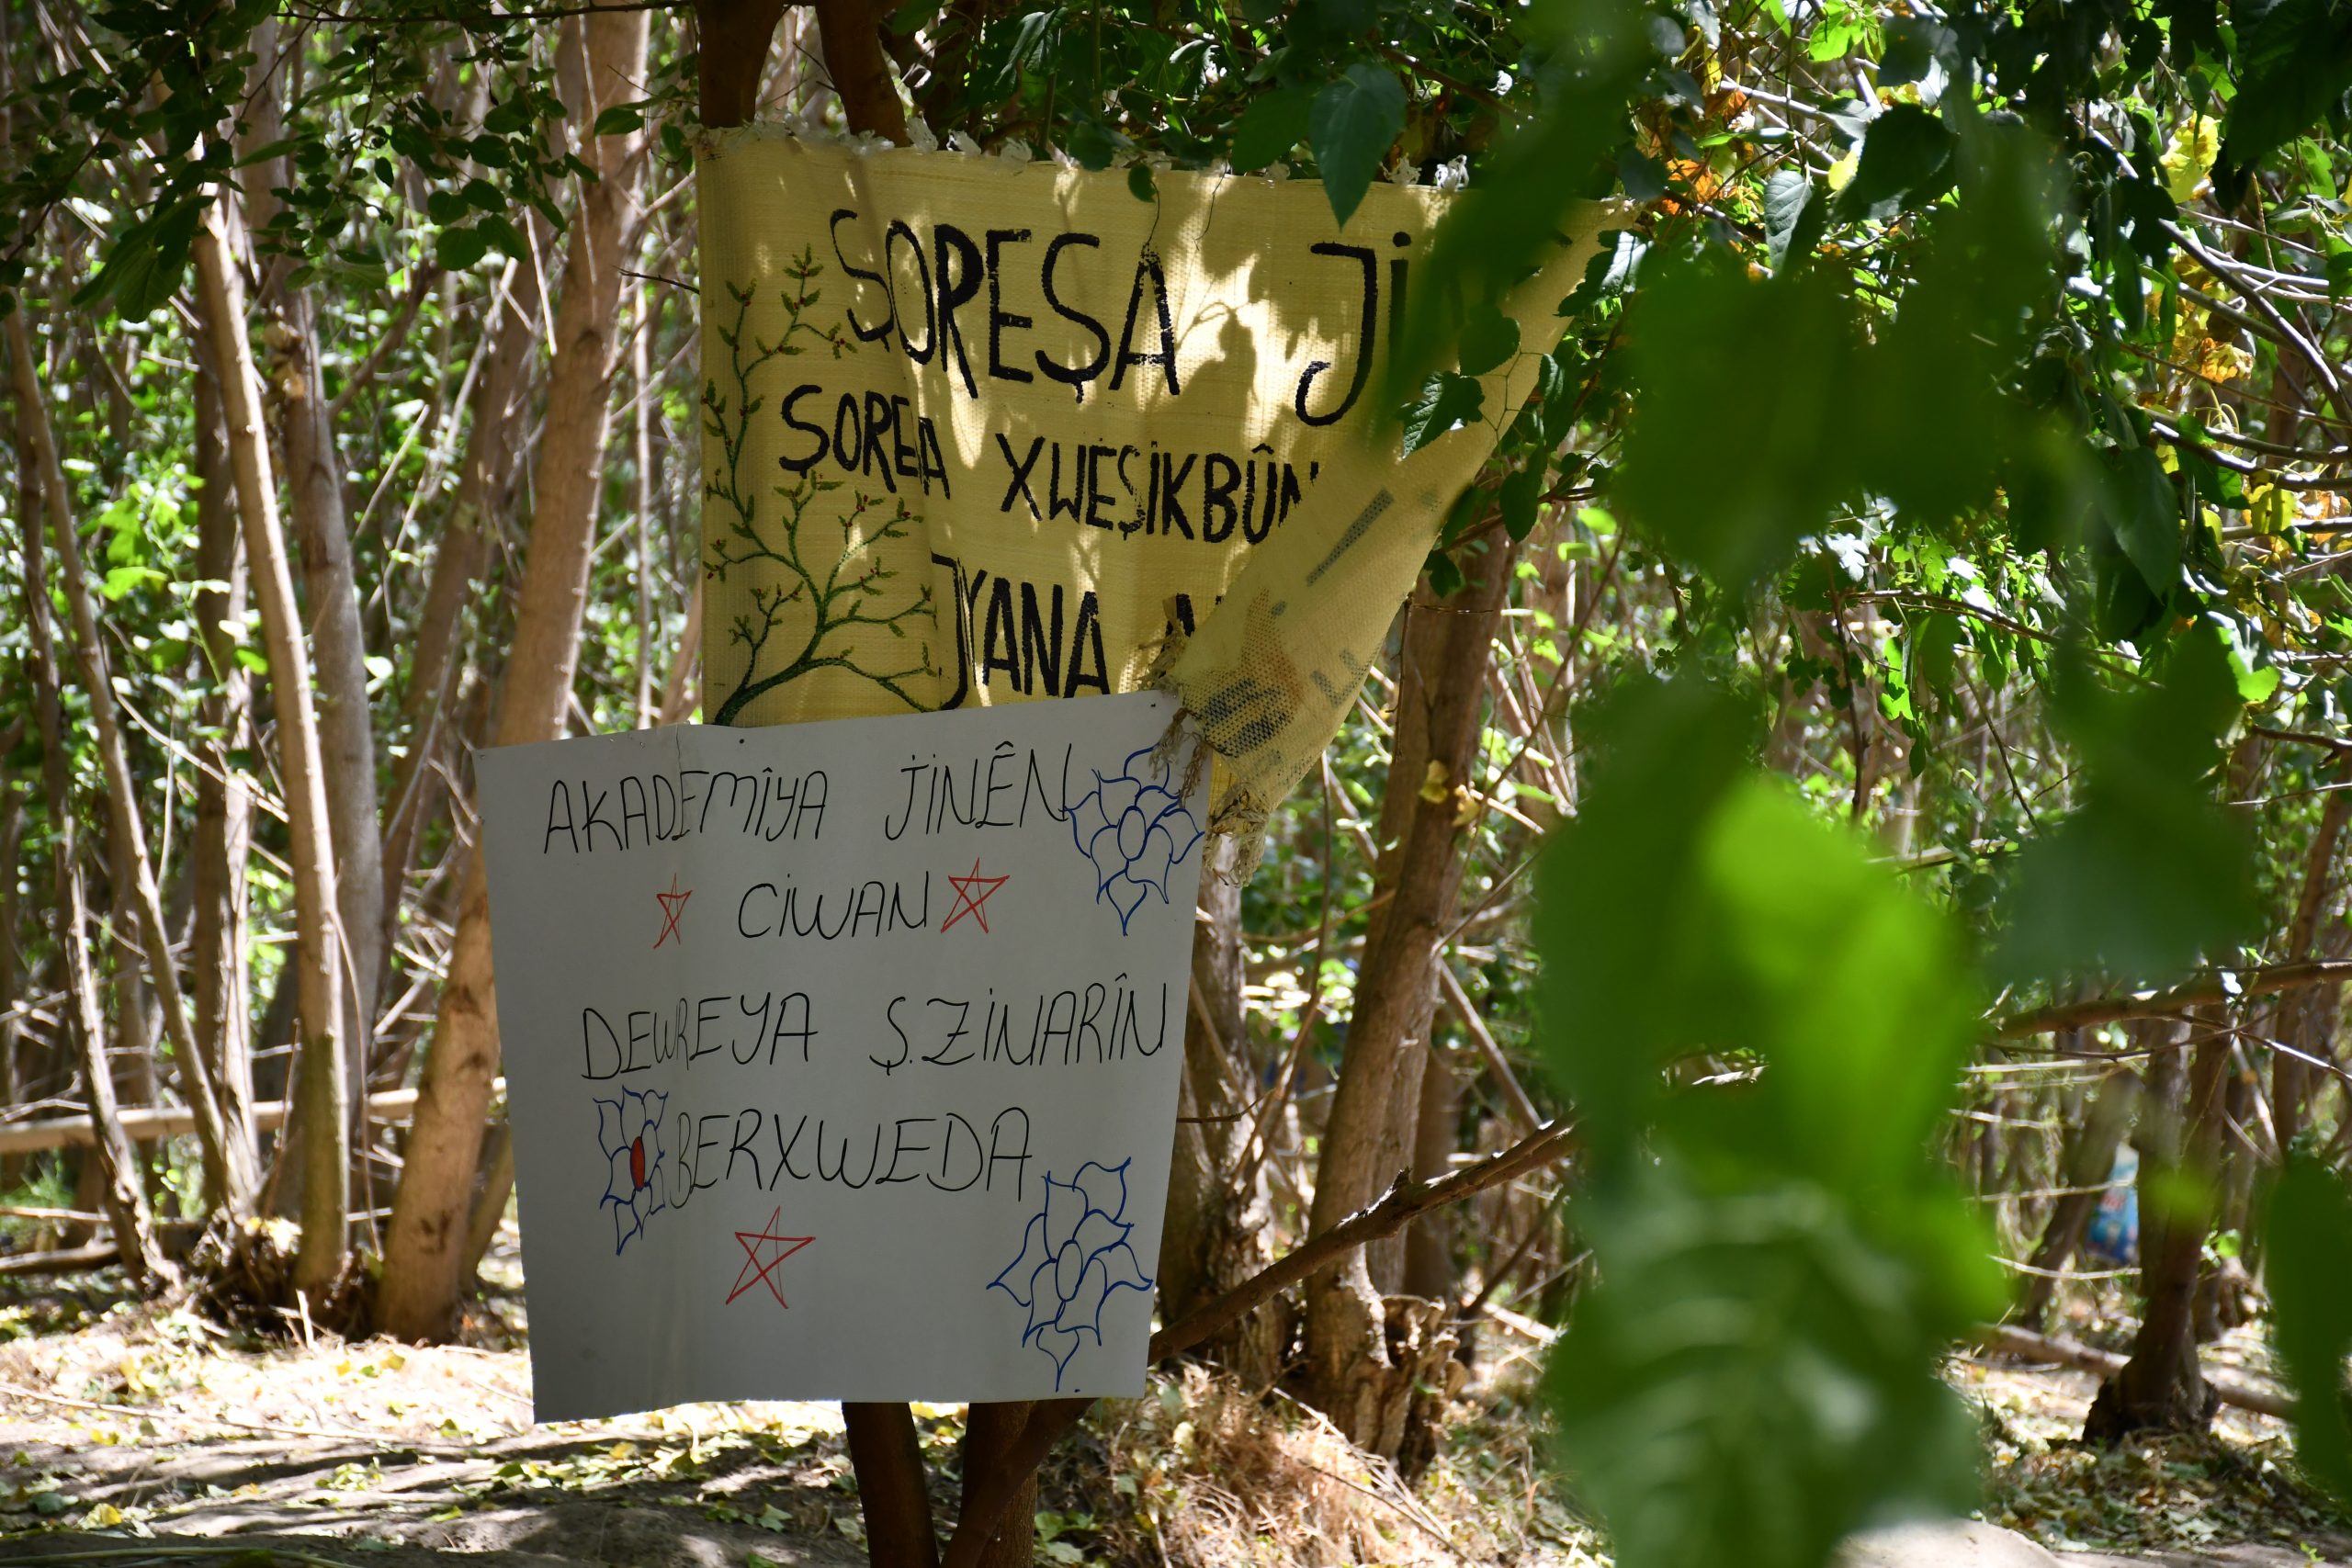 ŞOREŞA
ŞOREŞA XWEŞİKBÛN
JIYANA
AKADEMÎYA JİNÊN
CİWAN
DEWREYA Ş.ZİNARÎN
BERXWEDA